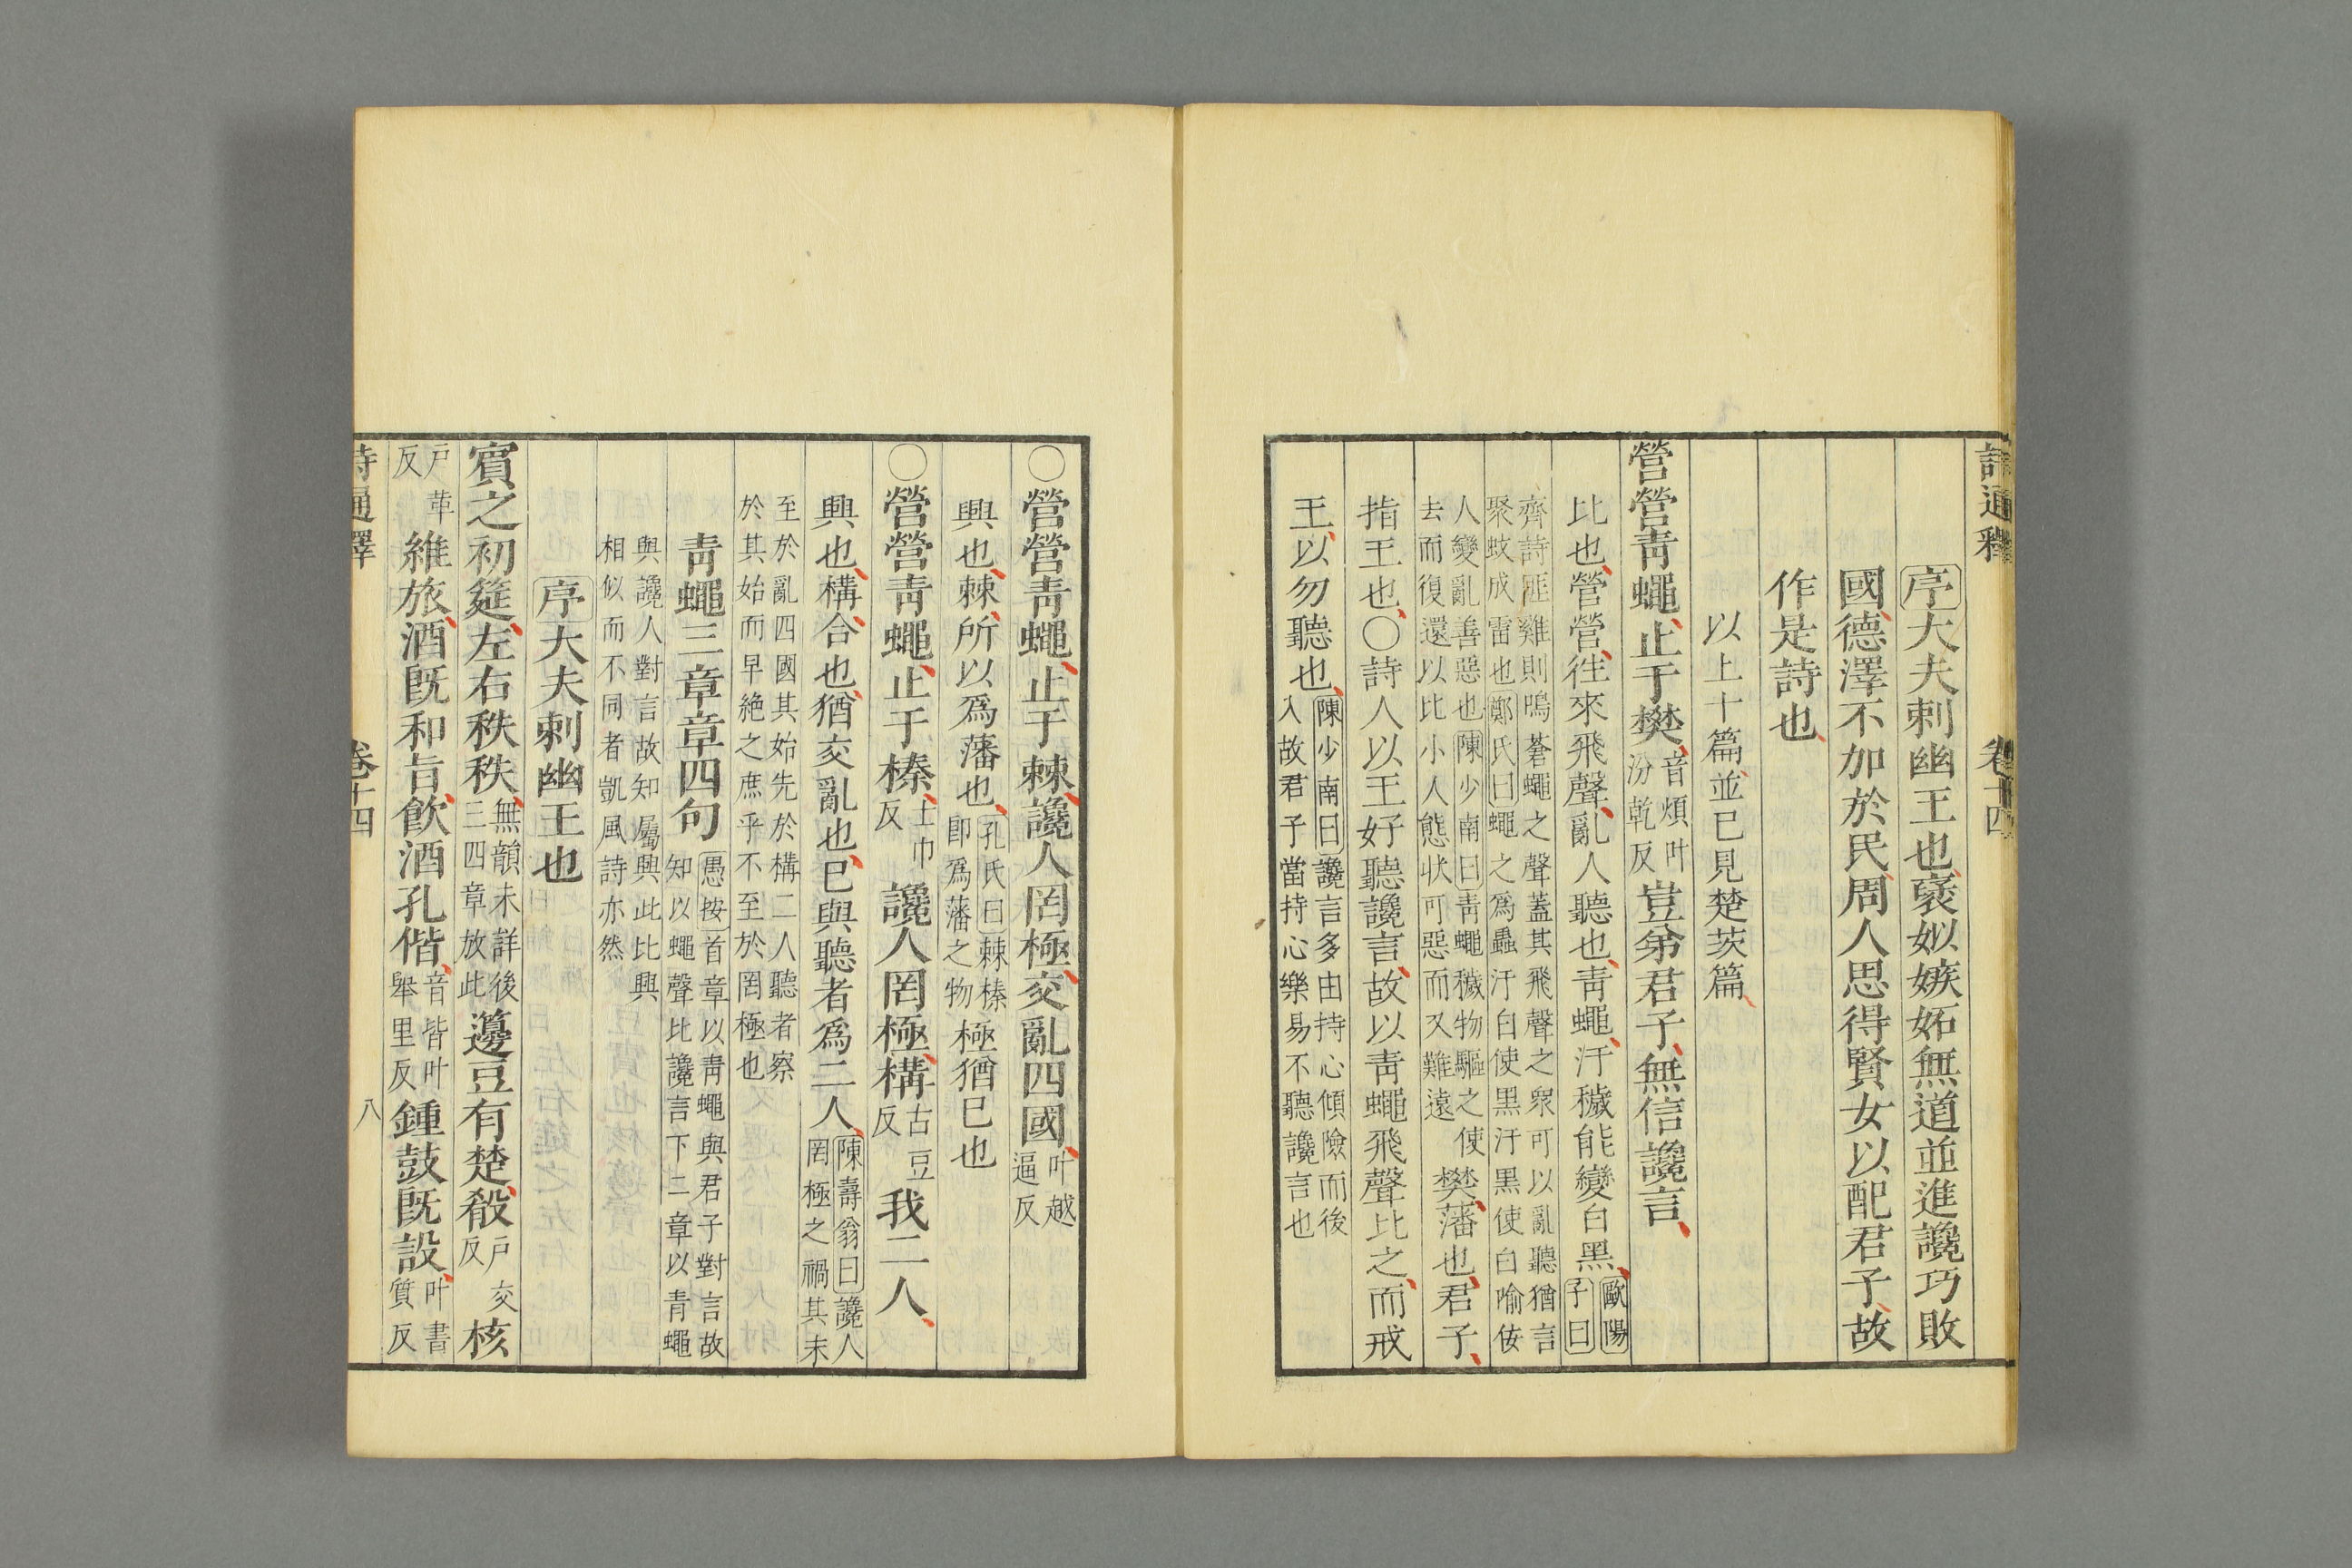 詩通釋　卷十四
序大夫刺幽王也褒姒嫉妬無道並進讒巧敗
國德澤不加於民周人思得賢女以配君子故
作是詩也
以上十篇並已見楚茨篇
營營靑蠅止于樊音煩叶汾乾反豈弟君子無信讒言
比也營營往來飛聲亂人聽也靑蠅汙穢能變白黑歐陽子曰
齊詩匪雞則鳴蒼蠅之聲蓋其飛聲之衆可以亂聽猶言
聚蚊成雷也鄭氏曰蠅之爲蟲汙白使黑汙黑使白喻佞
人變亂善惡也陳少南曰靑蠅穢物驅之使
去而復還以比小人態狀可惡而又難遠樊藩也君子
指王也○詩人以王好聽讒言故以靑蠅飛聲比之而戒
王以勿聽也陳少南曰讒言多由持心傾險而後
入故君子當持心樂易不聽讒言也
○營營靑蠅止于棘讒人罔極交亂四國叶越逼反
興也棘所以爲藩也孔氏曰棘榛卽爲藩之物極猶已也
○營營靑蠅止于榛士巾反讒人罔極構古豆反我二人
興也構合也猶交亂也已與聽者爲二人陳壽翁曰讒人罔極之禍其末
至於亂四國其始先於構二人聽者察
於其始而早絶之庶乎不至於罔極也
靑蠅三章章四句愚按首章以靑蠅與君子對言故
知以蠅聲比讒言下二章以靑蠅
與讒人對言故知屬興此比興
相似而不同者凱風詩亦然
序大夫刺幽王也
賓之初筵左右秩秩無韻未詳後三四章放此籩豆有楚殽戶交反核
戶革反維旅酒旣和旨飮酒孔偕音皆叶舉里反鍾鼓旣設叶書質反
詩通釋　卷十四　八